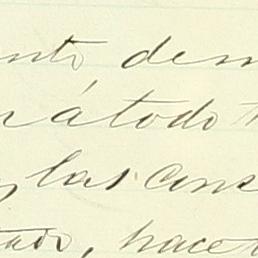 nto, dem
r á todo t
y las cons
tado, hacer